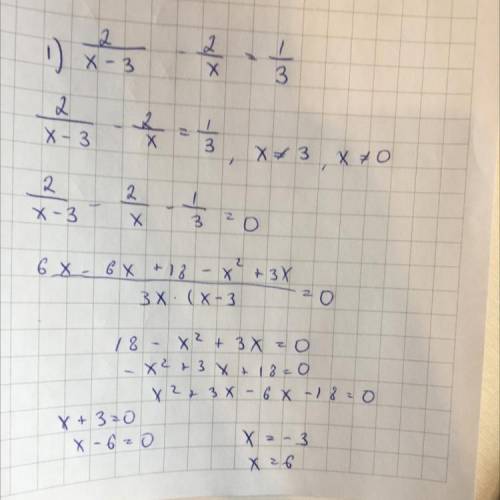 1) 2/(x-3) - 2/x = 1/3
2/(x-3) - 2/x = 1/3, x ≠ 3, x ≠ 0
2/(x-3) - 2/x - 1/3 = 0
(6x - 6x + 18 - x² + 3x)/(3x · (x-3) = 0
18 - x² + 3x = 0
- x² + 3x + 18 = 0
x² + 3x - 6x - 18 = 0
x + 3 = 0
x - 6 = 0
x = -3
x = 6